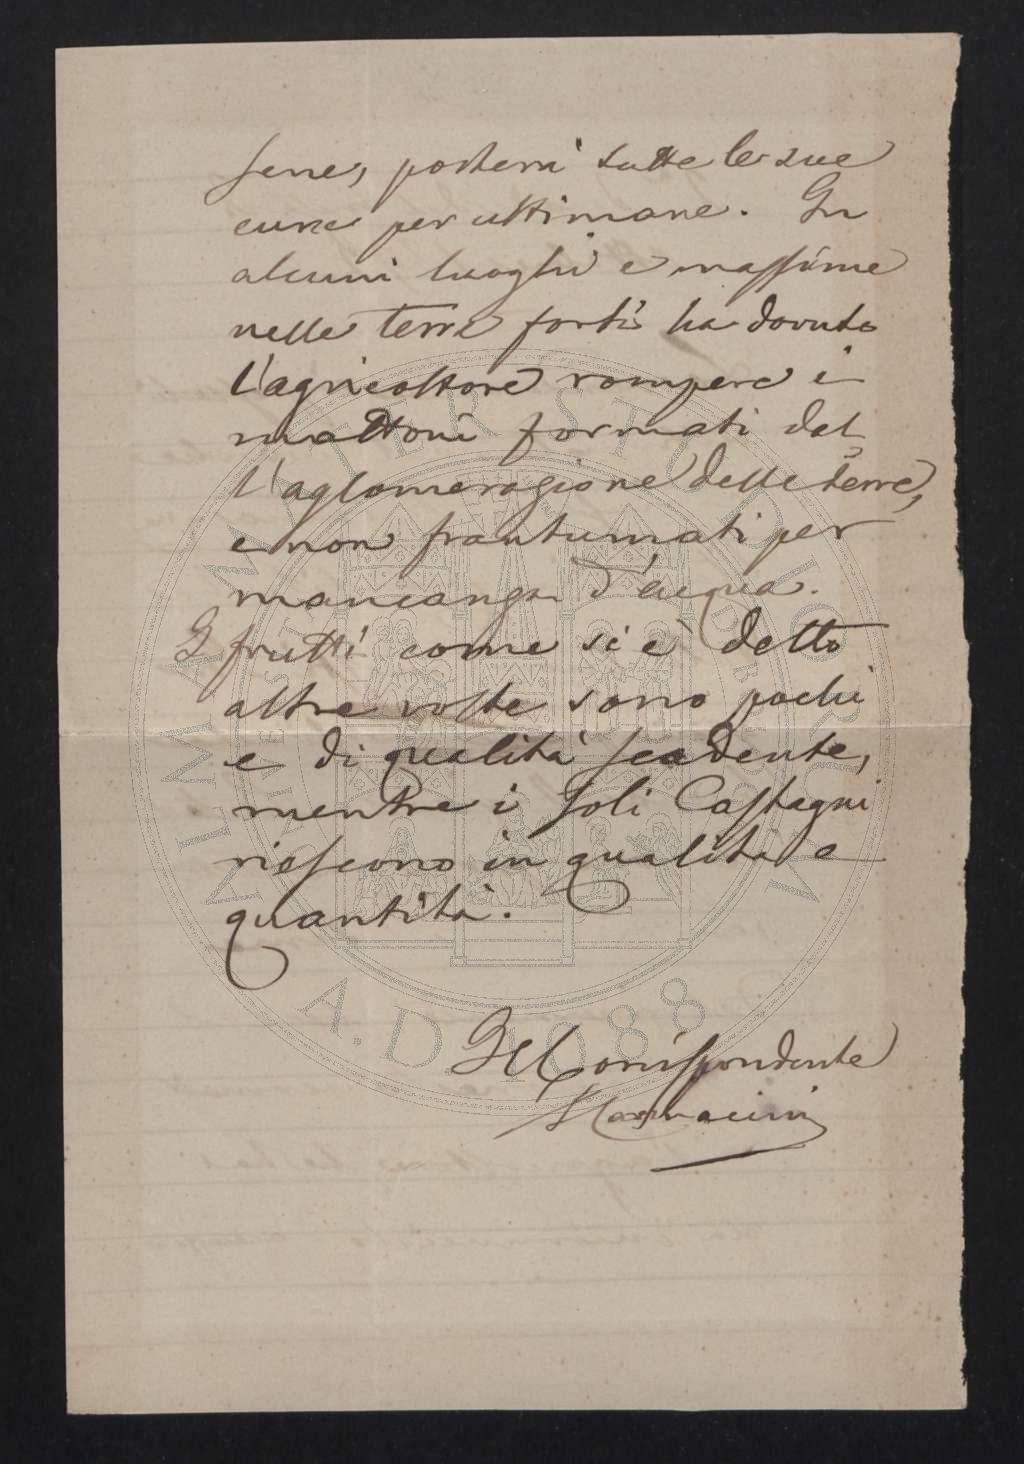 sene, porterà tutte le sue
cure per ultimare. In
alcuni luoghi e massime
nelle terre forti ha dovuto
l'agricoltore rompere i
mattoni formati dal
l'aglomerazione delle terre,
e non frantumati per
mancanza d'acqua.
I frutti come si è detto
altre volte sono pochi
e di qualità scadente,
mentre i soli Castagni
riescono in qualità e
quantità.
Il Corrispondente
ALMA MATER STUDIORUM
A.D. 1088